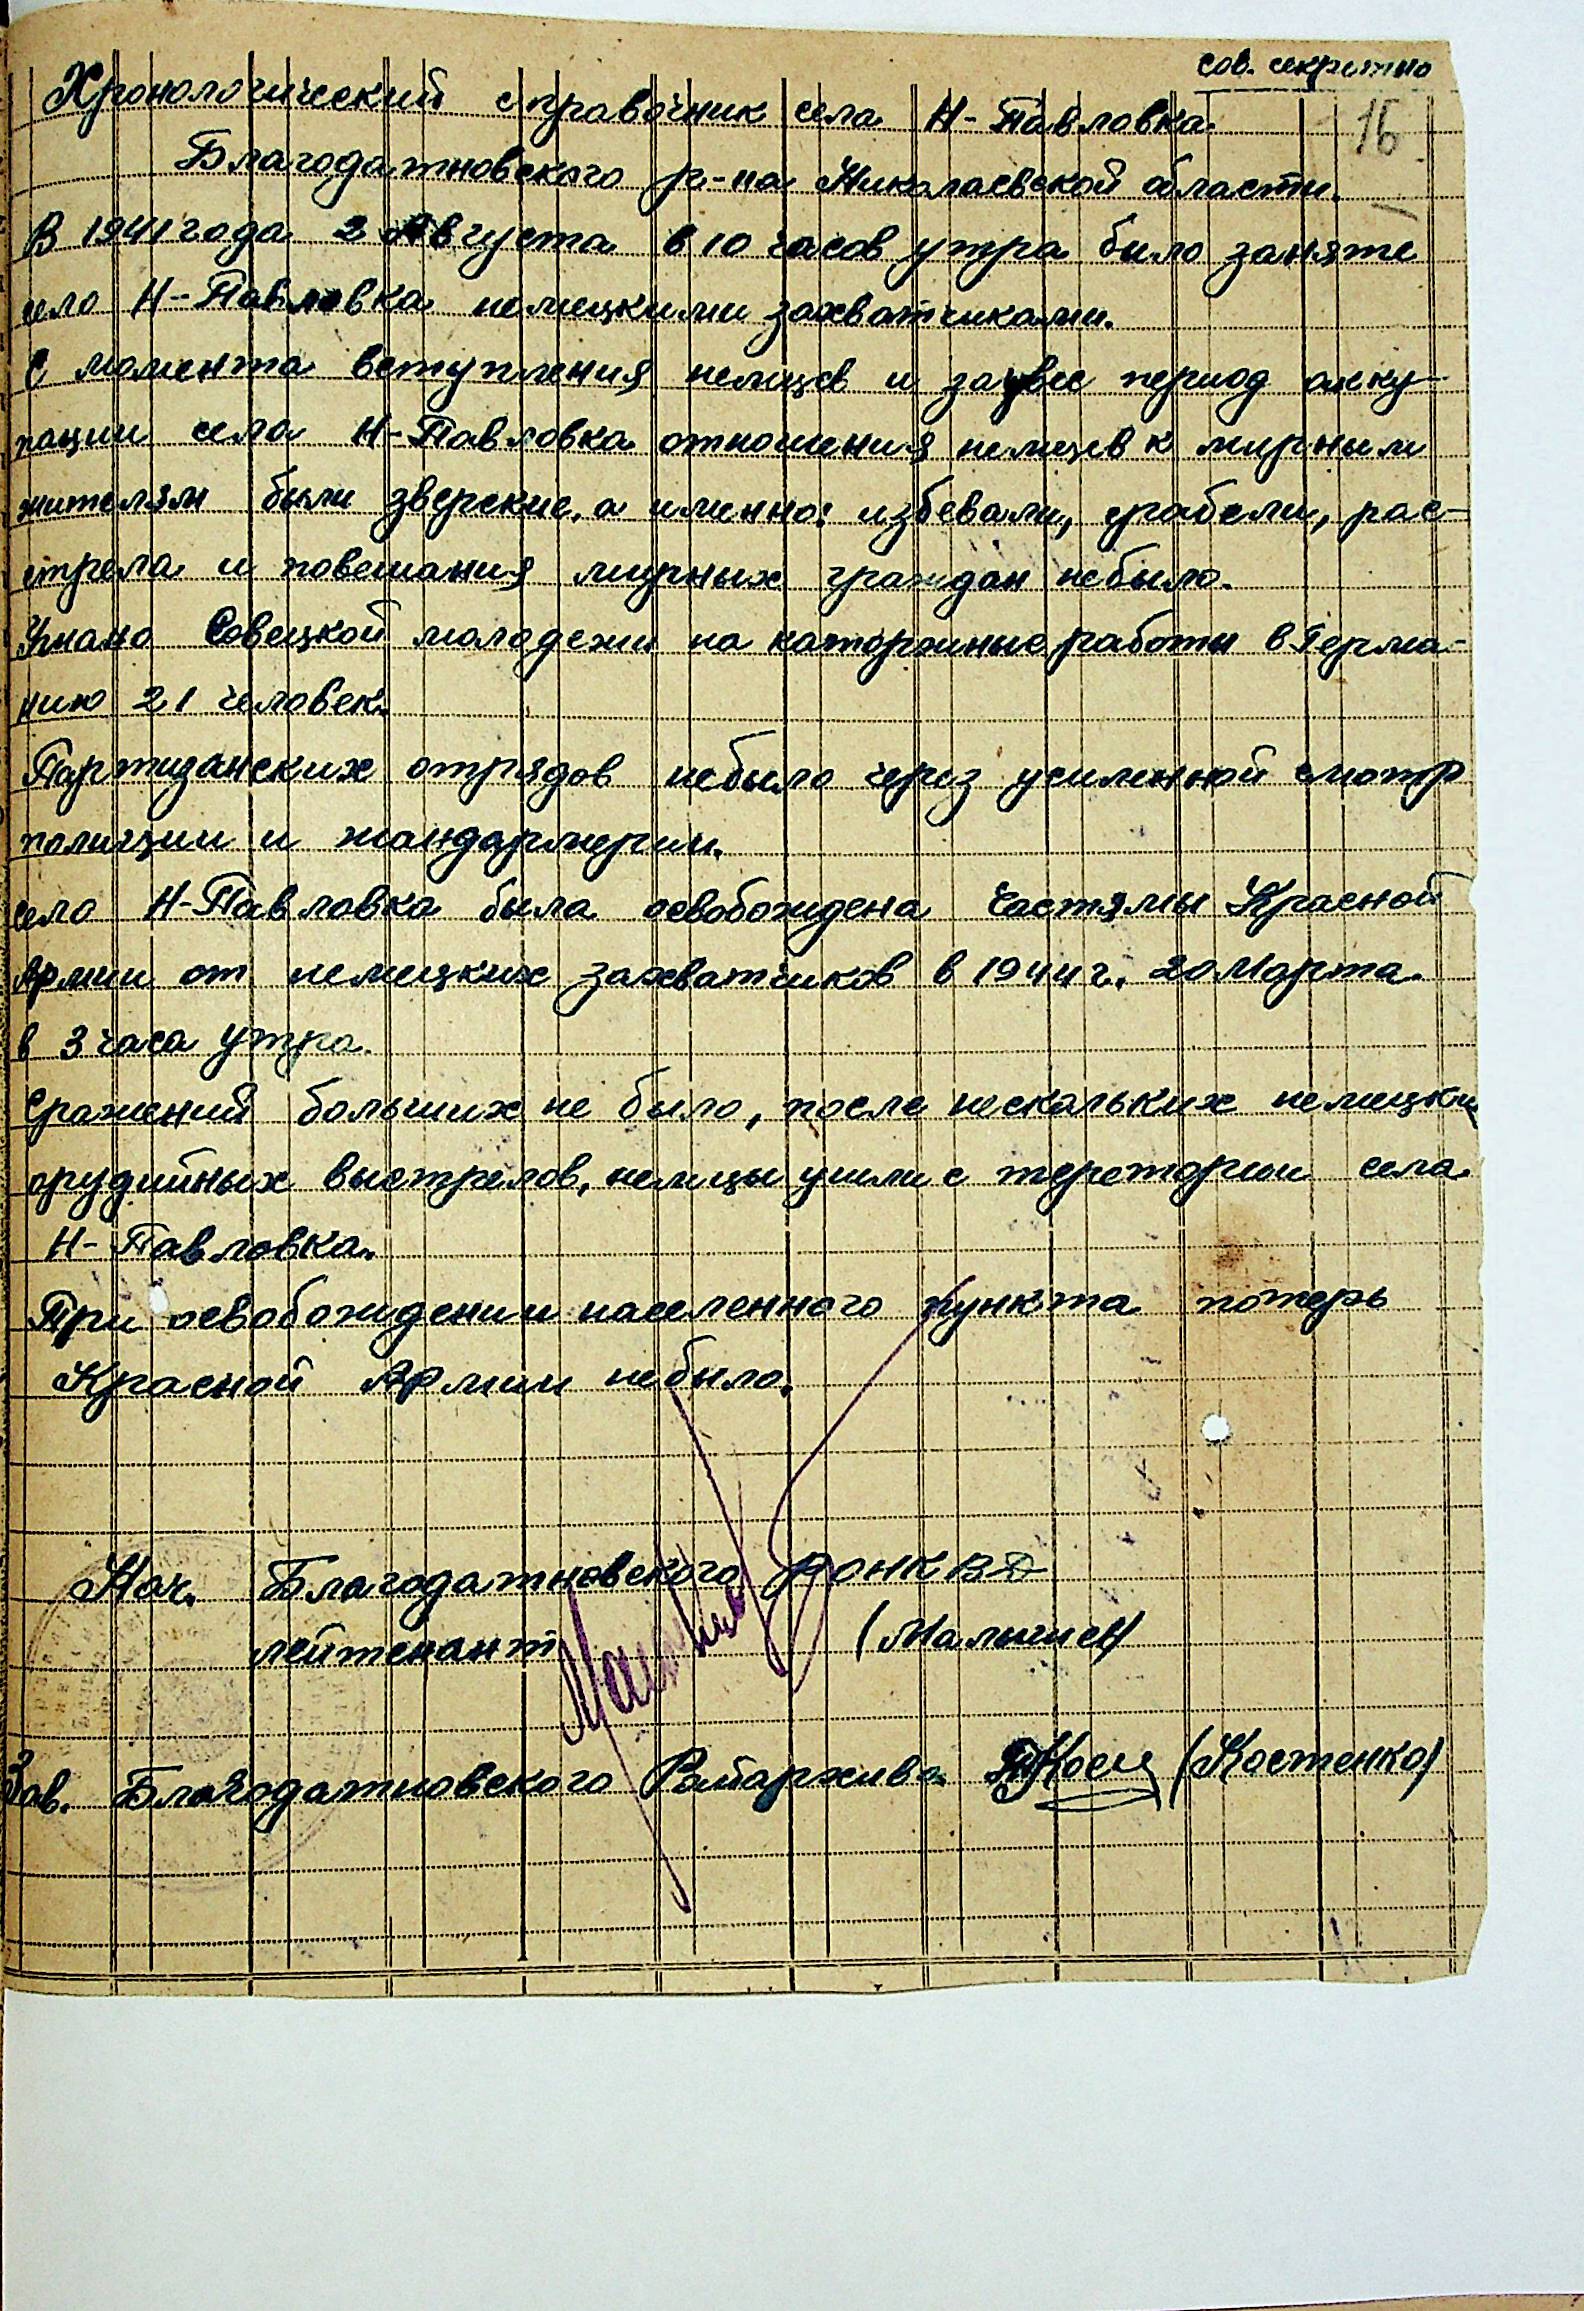 Сов. секретно
16
Хронологический справочник села Н-Павловка
Благодатновского р-на Николаевской области.
В 1941 года 2 Августа в 10 часов утра было занято
село Н-Павловка немецкими захватчиками.
С момента вступления немцев и за все период окку-
пации села Н-Павловка отношения немцев к мирным
жителям были зверские, а именно: избевали, грабели, рас-
стрела и повешания мирных граждан небыло.
Угнано Совецкой молодежи на каторжные работы в Герма-
нию 21 человек.
Партизанских отрядов небыло через усиленной смотр
полиции и жандармерии.
село Н-Павловка была освобождена Частямы Красной
Армии от немецких захватчиков в 1944 г. 20 Марта
в 3 часа утра.
Сражений больших не было, после нескальких немецких
орудийных выстрелов, немцы ушли с теретории села
Н-Павловка.
При освобождении населенного пункта потерь
Красной Армии небыло.
Нач. Благодатновского РОНКВД
лейтенант (Малышев)
Зав. Благодатновского Райархива (Костенко)